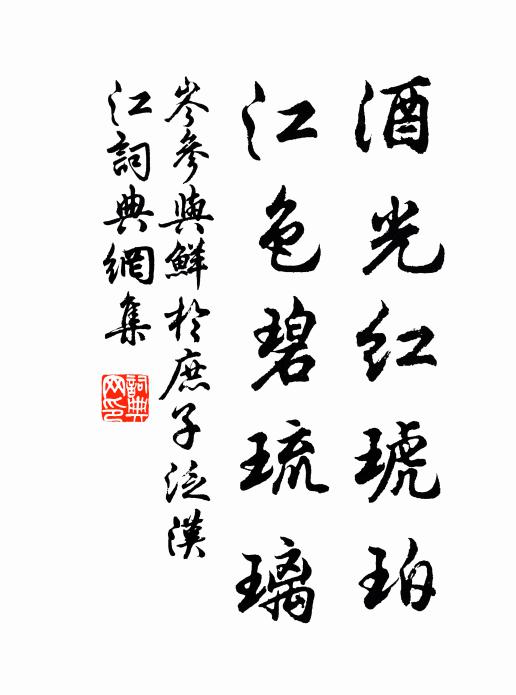 酒光红琥珀
江色碧琉璃
岑參與鮮於庶子泛漢
江詞典網集
詞典
网印